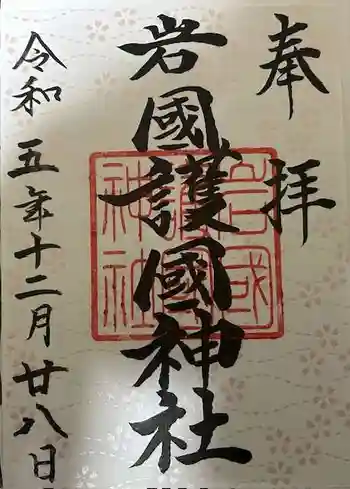 奉拝
岩國護國神社
岩國護國神社
令和五年十二月廿八日